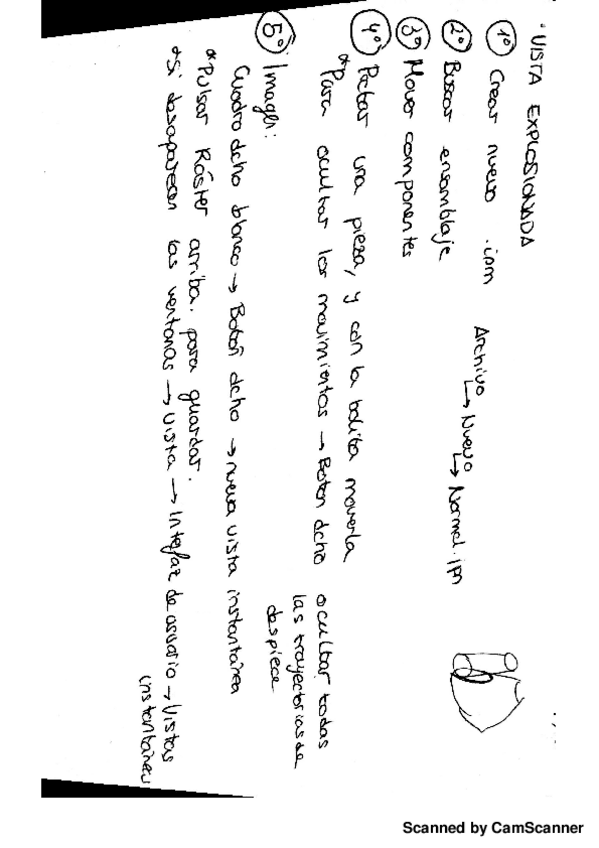 · VISTA EXPLOSIONADA
1º Crear nuevo .ipm Archivo
↳ Nuevo
↳ Normal.ipm
2º Buscar ensamblaje
3º Mover componentes
4º Picar una pieza, y con la bolita moverla
* Para ocultar los movimientos → Boton dcho ocultar todas
las trayectorias de
despiece
5º Imagen:
Cuadro dcho blanco → Botón dcho → nueva vista instantánea
* Pulsar Ráster arriba. para guardar.
* Si desaparecen las ventanas → Vista → Interfaz de usuario → Vistas
instantáneas
Scanned by CamScanner